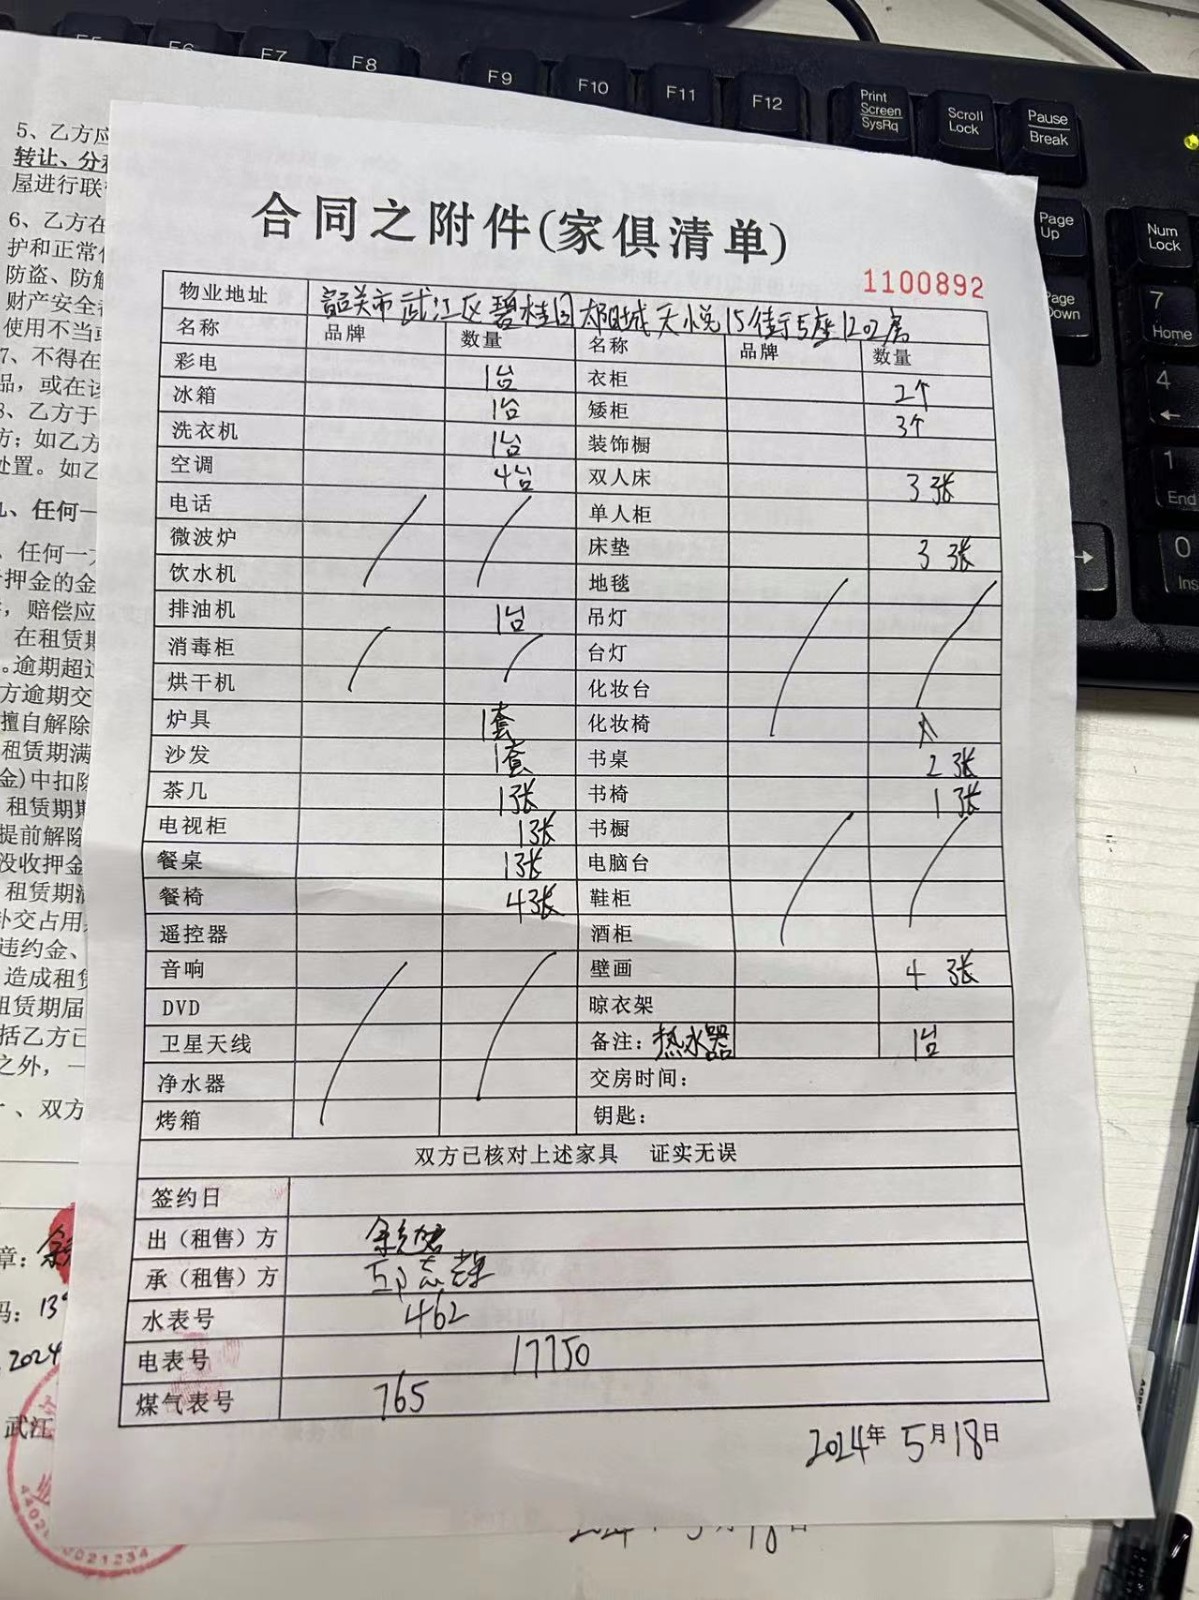 F5 F6 F7 F8 F9 F10 F11 F12 Print Screen SysRq Scroll Lock Pause Break
Page Up Num Lock
Page Down 7 Home
4
1 End
0 Ins
5、乙方应
转让、分
屋进行联
6、乙方在
护和正常
防盗、防
财产安全
使用不当或
7、不得在
品，或在该
8、乙方于
方；如乙方
处置。如乙
九、任何一
、任何一方
押金的金
，赔偿应
在租赁期
。逾期超过
方逾期交
擅自解除
租赁期满
金)中扣除
租赁期
提前解除
没收押金
租赁期满
交占用
违约金、
造成租赁
租赁期届
括乙方已
之外，一
、双方
章：
码：13
2024
武江
0021234
合同之附件(家俱清单)
1100892
物业地址 韶关市武江区碧桂园 城天悦15街5座1202房
名称 品牌 数量 名称 品牌 数量
彩电 1台 衣柜 2个
冰箱 1台 矮柜 3个
洗衣机 1台 装饰橱
空调 4台 双人床 3张
电话 单人柜
微波炉 床垫 3张
饮水机 地毯
排油机 1台 吊灯
消毒柜 台灯
烘干机 化妆台
炉具 1套 化妆椅
沙发 1套 书桌 2张
茶几 1张 书椅 1张
电视柜 1张 书橱
餐桌 1张 电脑台
餐椅 4张 鞋柜
遥控器 酒柜
音响 壁画 4张
DVD 晾衣架
卫星天线 备注：热水器 1台
净水器 交房时间：
烤箱 钥匙：
双方已核对上述家具 证实无误
签约日
出（租售）方
承（租售）方
水表号 462
电表号 17750
煤气表号 765
2024年5月18日